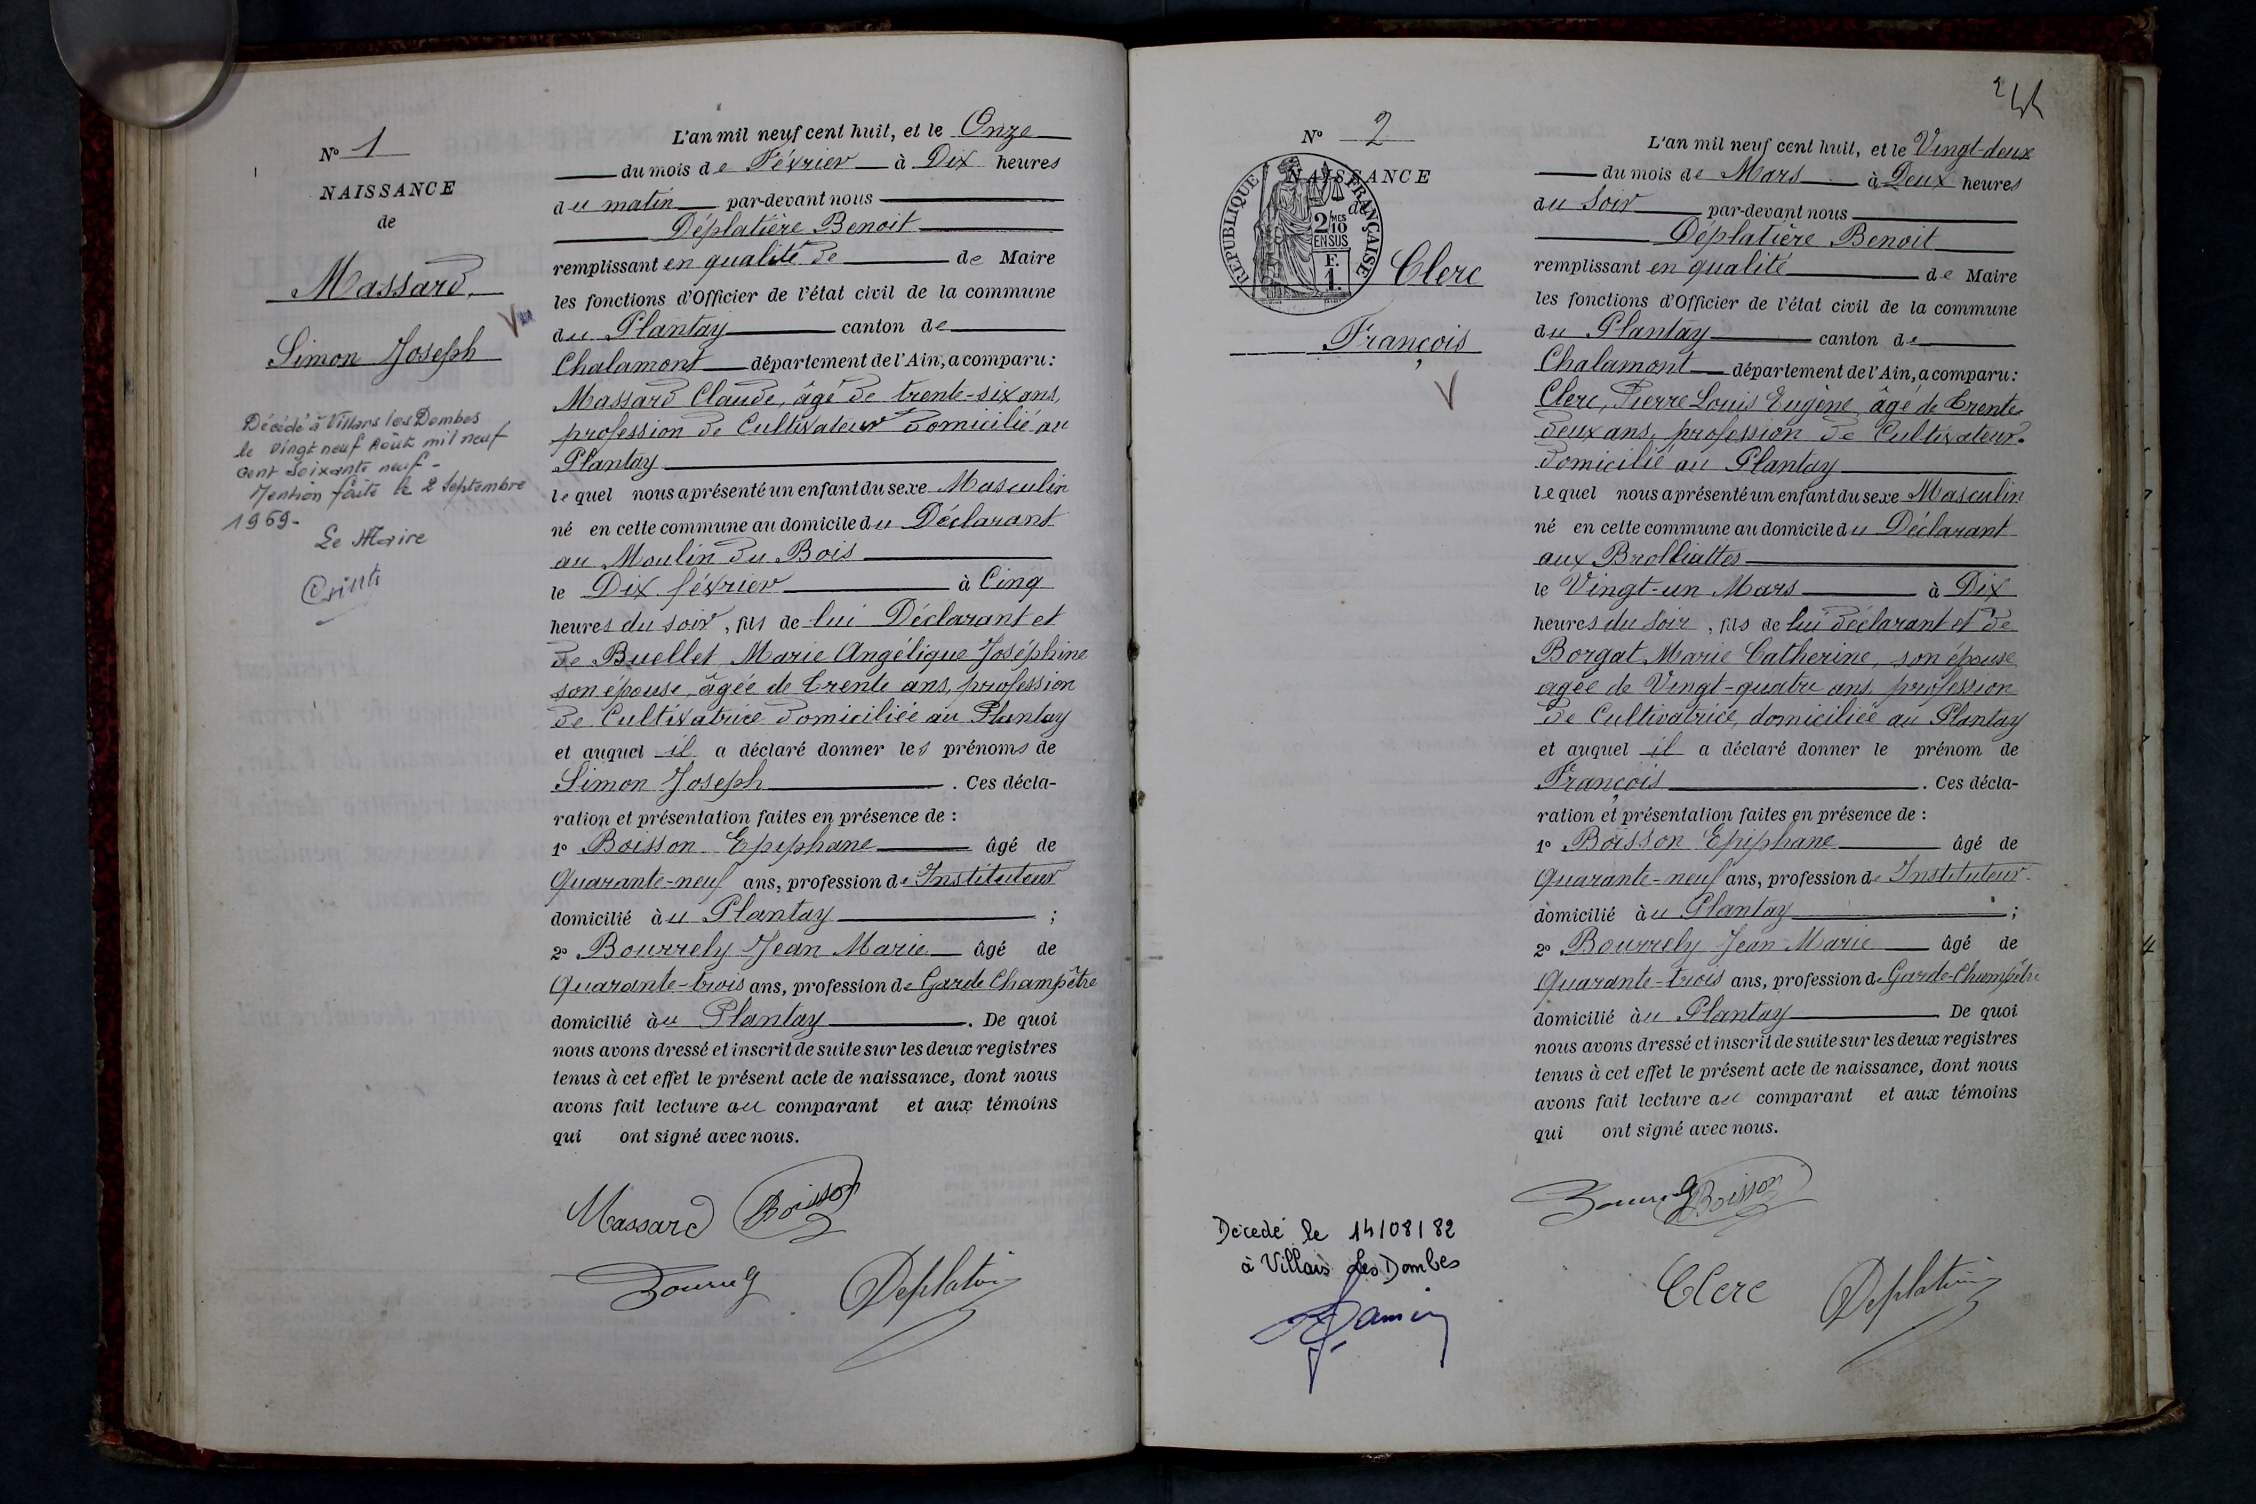 N° 1
NAISSANCE
de
Massard
Simon Joseph
Décédé à Villars les Dombes
le vingt neuf Août mil neuf
cent soixante neuf -
Mention faite le 2 Septembre
1969-
Le Maire
L'an mil neuf cent huit, et le Onze
du mois de Février à Dix heures
du matin par-devant nous
Déplatière Benoit
remplissant en qualité de de Maire
les fonctions d'Officier de l'état civil de la commune
du Plantay canton de
Chalamont département de l'Ain, a comparu :
Massard Claude, âgé de trente-six ans,
profession de Cultivateur domicilié au
Plantay
lequel nous a présenté un enfant du sexe Masculin
né en cette commune au domicile du Déclarant
au Moulin du Bois
le Dix février à Cinq
heures du soir, fils de lui Déclarant et
de Buellet Marie Angélique Joséphine
son épouse, âgée de trente ans, profession
de Cultivatrice domiciliée au Plantay
et auquel il a déclaré donner les prénoms de
Simon Joseph . Ces décla-
ration et présentation faites en présence de :
1° Boisson Epiphane âgé de
Quarante-neuf ans, profession de Instituteur
domicilié à u Plantay ;
2° Bourrely Jean Marie âgé de
Quarante-trois ans, profession de Garde Champêtre
domicilié à u Plantay . De quoi
nous avons dressé et inscrit de suite sur les deux registres
tenus à cet effet le présent acte de naissance, dont nous
avons fait lecture au comparant et aux témoins
qui ont signé avec nous.
Massard Boisson
N° 2
NAISSANCE
de
RÉPUBLIQUE FRANÇAISE
2/10
EN SUS
F.
1.
Clerc
François
Décédé le 14/08/82
à Villars les Dombes
L'an mil neuf cent huit, et le Vingt-deux
du mois de Mars à Deux heures
du Soir par-devant nous
Déplatière Benoit
remplissant en qualité de Maire
les fonctions d'Officier de l'état civil de la commune
du Plantay canton de
Chalamont département de l'Ain, a comparu :
Clerc, Pierre Louis Eugène âgé de trente
deux ans, profession de Cultivateur
domicilié au Plantay
lequel nous a présenté un enfant du sexe Masculin
né en cette commune au domicile du Déclarant
aux
le Vingt-un Mars à Dix
heures du Soir, fils de lui déclarant et de
Borgat Marie Catherine, son épouse
agée de Vingt-quatre ans, profession
de Cultivatrice, domiciliée au Plantay
et auquel il a déclaré donner le prénom de
François . Ces décla-
ration et présentation faites en présence de :
1° Boisson Epiphane âgé de
Quarante-neuf ans, profession de Instituteur
domicilié à u Plantay ;
2° Bourrely Jean Marie âgé de
Quarante-trois ans, profession de Garde-Champêtre
domicilié à u Plantay De quoi
nous avons dressé et inscrit de suite sur les deux registres
tenus à cet effet le présent acte de naissance, dont nous
avons fait lecture au comparant et aux témoins
qui ont signé avec nous.
Boisson
Clerc